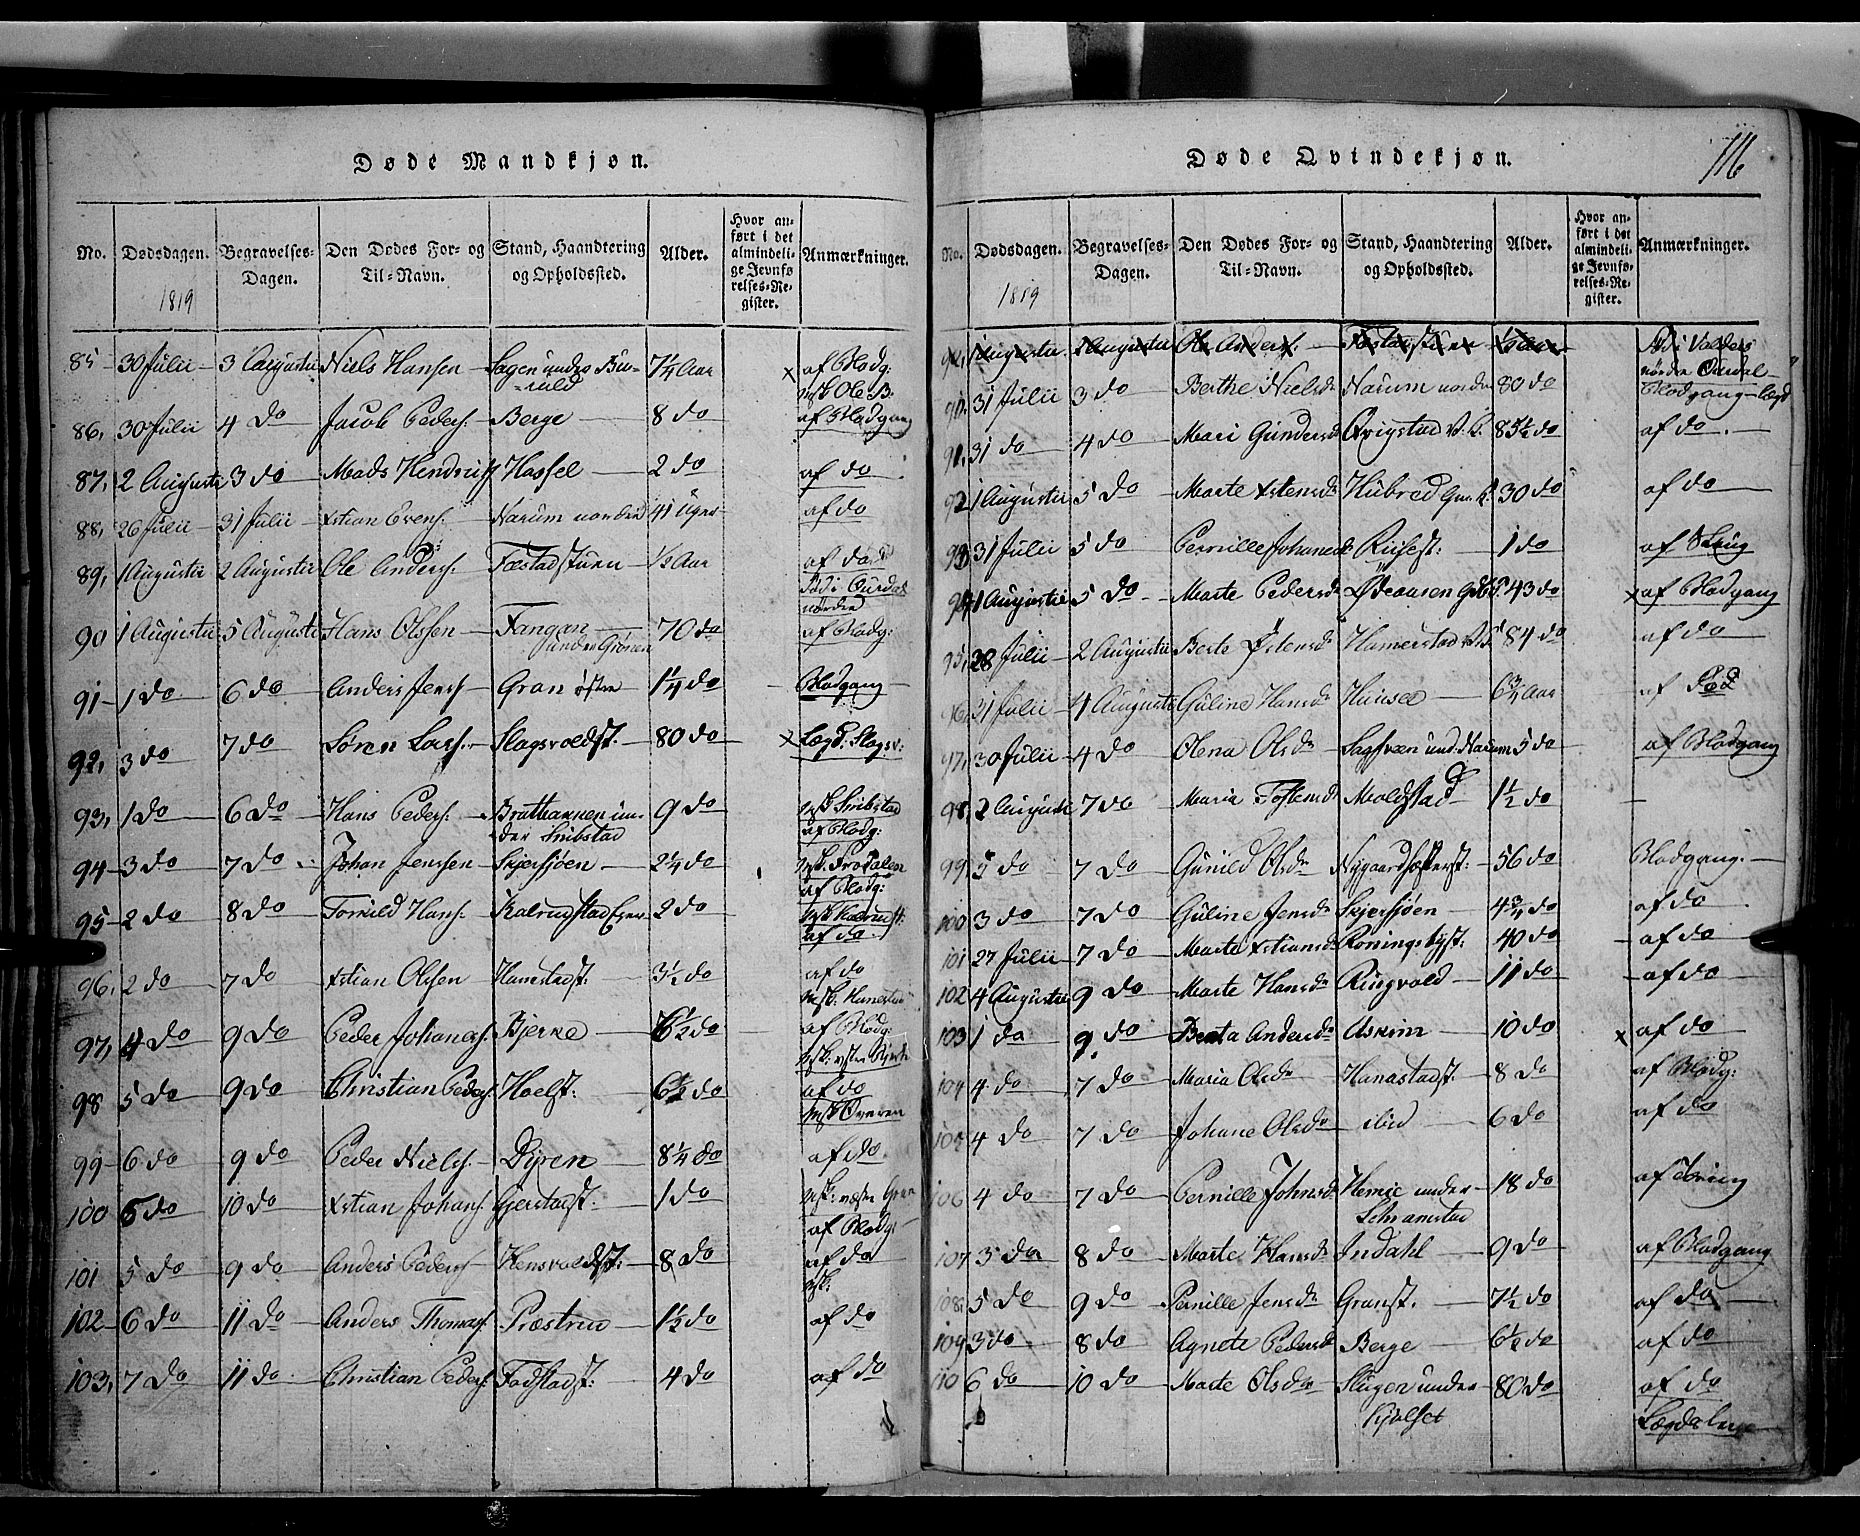 Døde Mandkjøn.
No. Dødsdagen. Begravelses-Dagen. Den Dødes For- og Til-Navn. Stand, Haandtering og Opholdssted. Alder. Hvor anført i det almindelige Jevnførelses-Register. Anmærkninger.
1819
85 30 Julii 3 Augustii Niels Hansen Sagen under Bu- 7 1/4 Aar x af Blodg:
ruld
86, 30 Julii 4 Do Jacob Peders. Berge 8 do af Blodgang
87, 2 Augusti 3 do Mads Hendrichs Hassel 2 do af do
88, 26 Julii 31 Julii Xstian Evens. Narum nordre 41 Uger af do
89, 1 Augustii 2 Augustii Ole Anders. Fæstadstuen 1/2 Aar af do
90 1 Augustii 5 Augusti Hans Olsen Fangan 70 do af Blodg:
under Grönen
91 1 Do 6 do Anders Jens. Gran östre 1 1/4 do Blodgang
92, 3 do 7 do Søren Lars. Slagsvoldst. 80 do x Lægd: Slagsv:
93, 1 Do 6 Do Hans Peders. Brattbakken un- 9 do
der Snibstad af Blodg:
94 3 do 7 Do Johan Jenssen Skjersjöen 2 1/4 do
af Blodg:
95 2 do 8 do Tomild Hans. Kalrudstad 2 do
af do
96, 2 do 7 do Xstian Olsen Hanestadst. 3 1/2 do af do
97, 4 do 9 do Peder Johanes. Bjerke 6 1/2 do af Blodg:
98 5 do 9 do Christian Peders. Hoelst: 6 1/2 do af do
99 6 do 9 do Peder Niels. Dyren 8 1/4 do af do
100 5 do 10 do Xstian Johans. Gjerstadst: 1 do
af Blodg:
101 5 do 9 do Anders Peders. Hensvoldst: 8 do af do
102 6 do 11 do Anders Thomas. Præstrud 1 1/2 do af do
103, 7 do 11 do Christian Peders. Fodstadst: 4 do af do
Døde Qvindekjøn.
116
No. Dødsdagen. Begravelses-Dagen. Den Dødes For- og Til-Navn. Stand, Haandtering og Opholdssted. Alder. Hvor anført i det almindelige Jevnførelses-Register. Anmærkninger.
1819
1 Augustii 2 Augustii Ole Anders. Fæstadstuen 1/2 Aar
nordre Ourdal
90, 31 Julii 3 do Berthe Nielsd. Narum nordre 80 do Blodgang
91, 31 do 4 do Mari Gundersd. Qvigstad 85 1/2 do af do
92 1 Augustii 5 Do Marte Xstensd. Hubred 30 do af do
93 31 Julii 5 do Pernille Johansd. Riisest: 1 do
94 1 Augustii 5 Do Marte Pedersd. Ødeaasen 43 do x af Blodgang
95, 28 Julii 2 Augustii Berte Østensd. Hamerstad 84 do af do
96, 31 Julii 4 Augusti Guline Hansd. 6 3/4 Aar af
97, 30 Julii 4 do Olena Olsd. und. Narum 5 do af Blodgang
98, 2 Augusti 7 do Maria Tostensd. Moldstad 1 1/2 do
99 5 do 7 do Gunild Olsd. 56 do Blodgang.
100 3 do 7 do Guline Jensd. Skjersjöen 4 3/4 do af do
101 27 Julii 7 do Marte Xstiansd. Koningsbyst: 40 do af do
102 4 Augustii 9 do Marte Hansd. Ringvold 11 do af do
103 1 do 9 do Berta Andersd. Askim 10 do x af do
104 4 do 7 do Maria Olsd. Hanestadst. 8 do af Blodg:
105 4 do 7 do Johane Olsd. ibid 6 do af do
106 4 do 7 do Pernille Johnsd. Hemie under 18 do af
Schramstad
107 3 do 8 do Marte Hansd. Indahl 9 do af Blodgang
108 5 do 9 do Pernille Jensd. Granst. 7 1/2 do af do
109 3 do 8 do Agnete Pedersd. Berge 6 1/2 do af do
110 6 do 10 do Marte Olsd. Slugen under 80 do af do
Kjölset